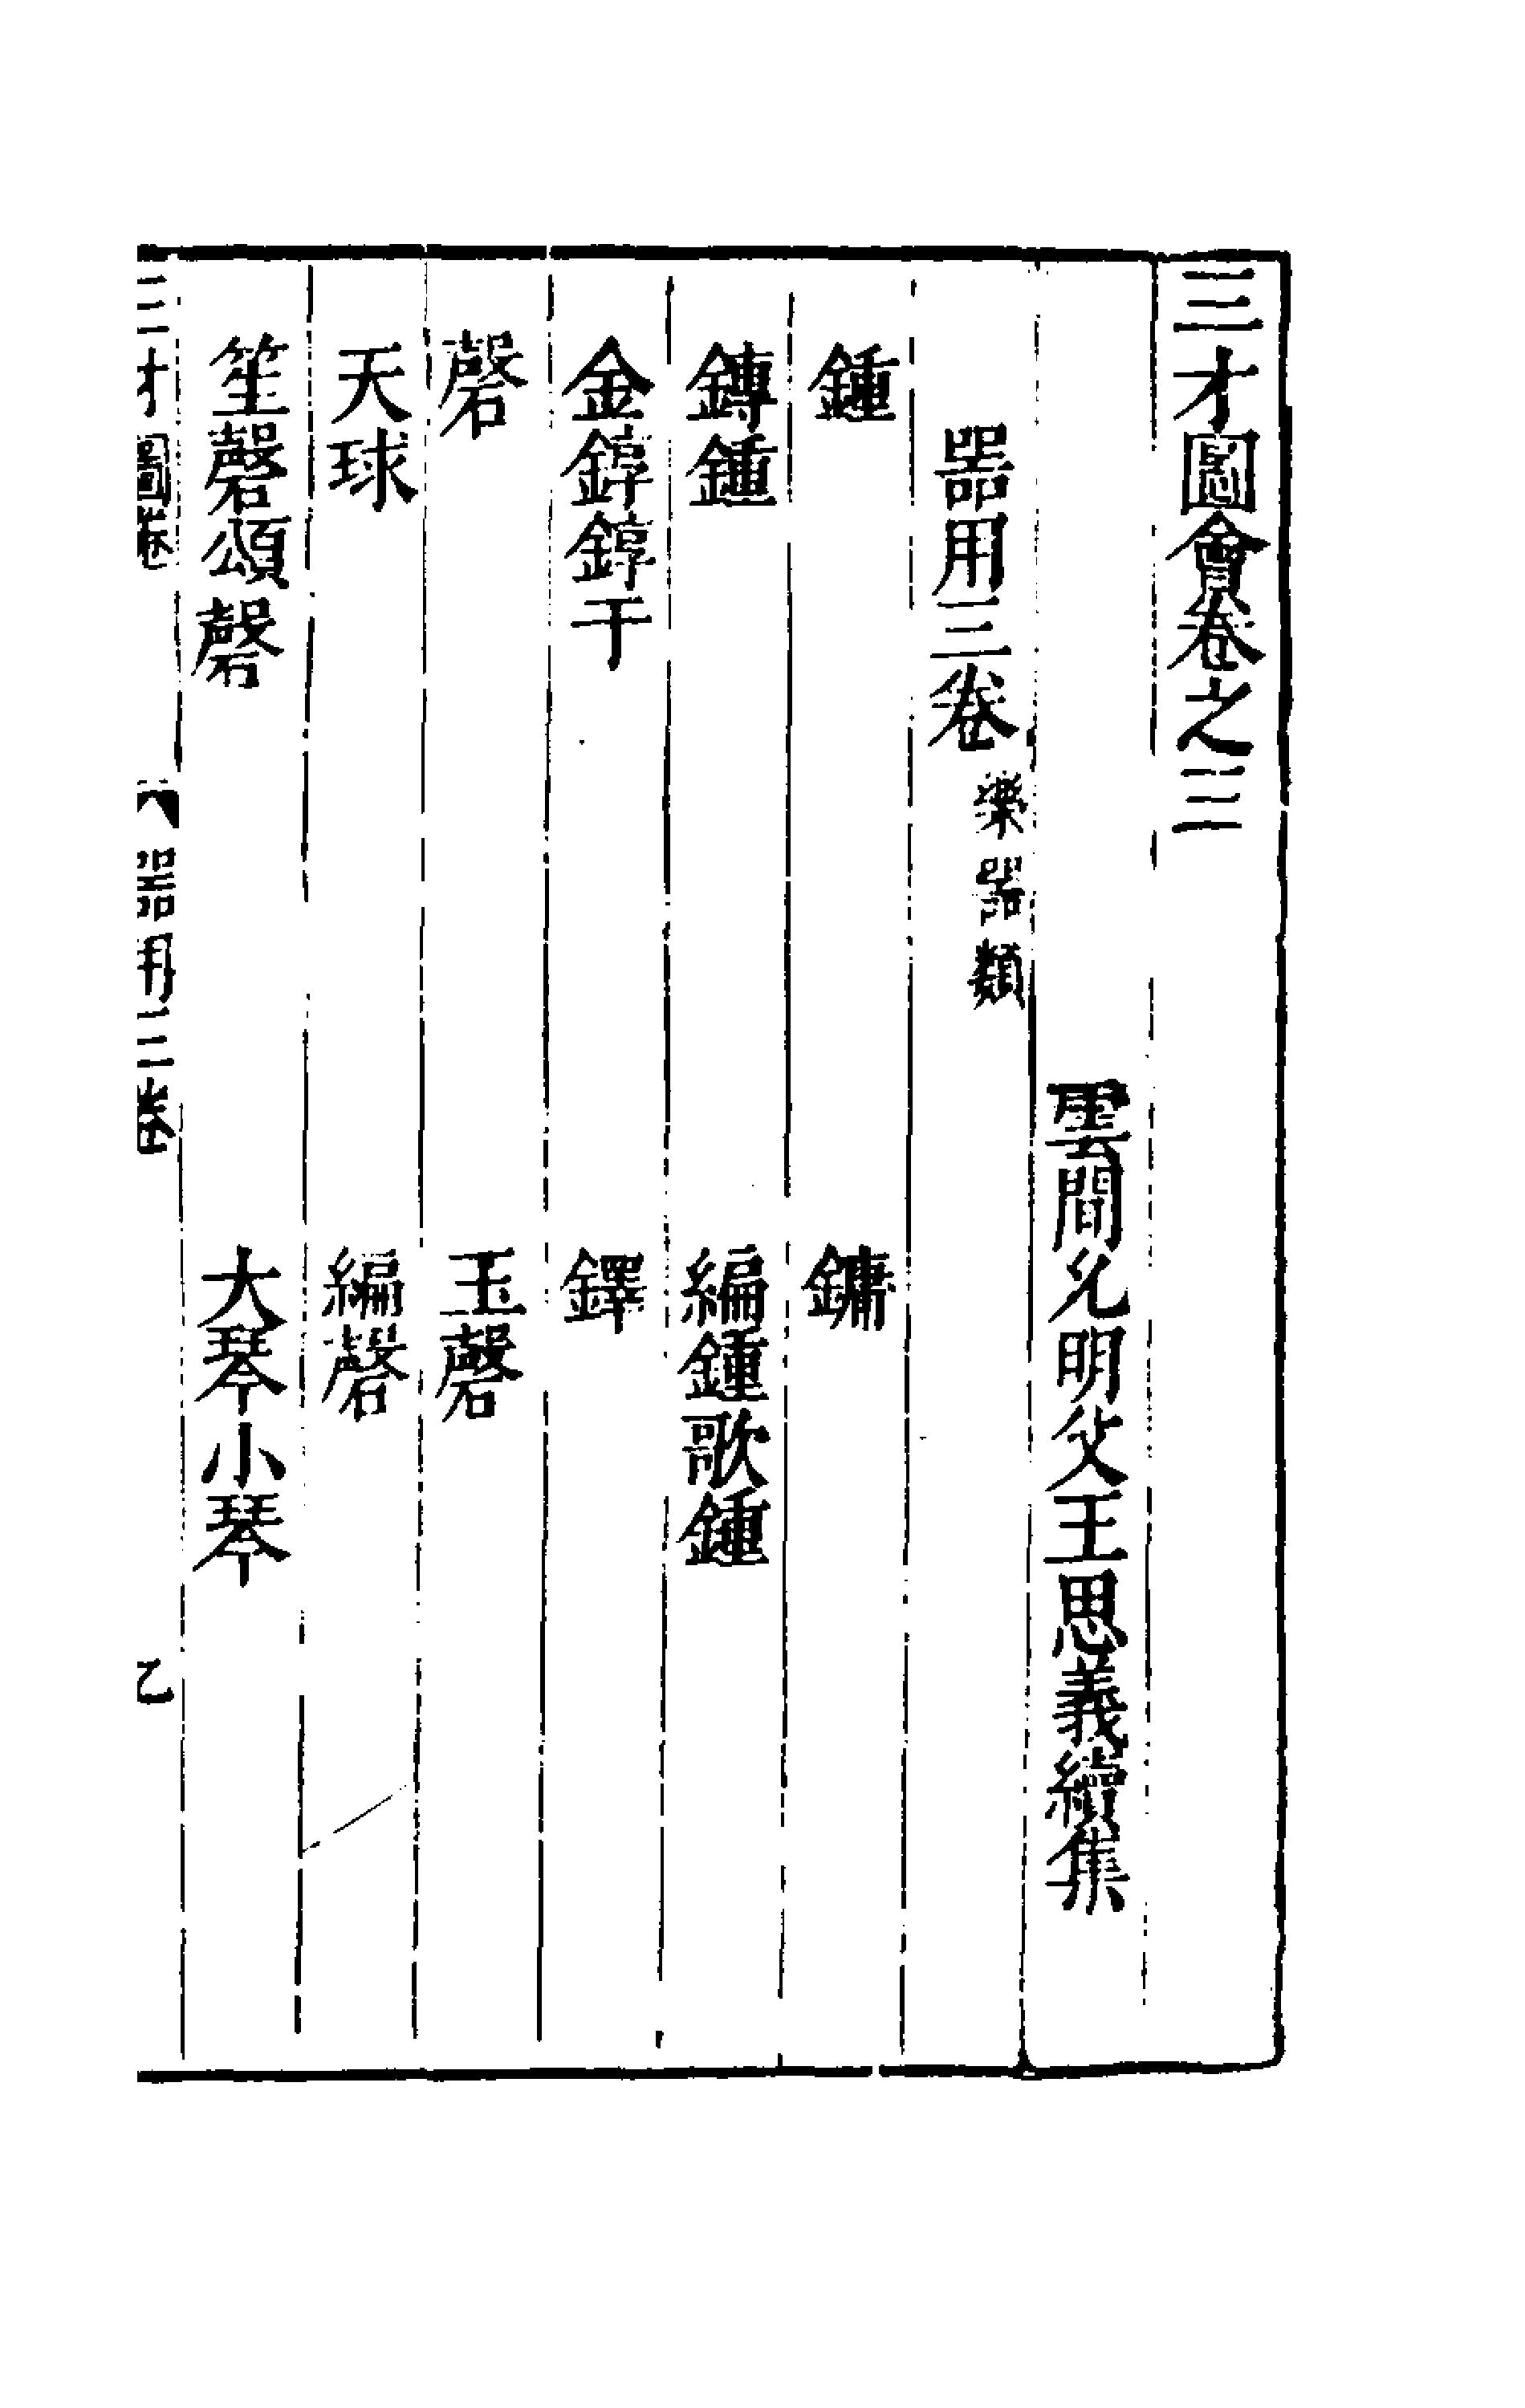 三才圖會卷之三
雲間允明父王思義續集
器用三卷 樂器類
鍾 鏞
鎛鍾 編鍾歌鍾
金錞錞于 鐸
磬 玉磬
天球 編磬
笙磬頌磬 大琴小琴
三才圖會 器用三卷 乙